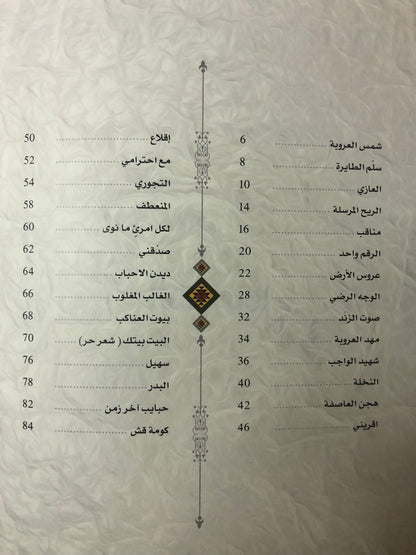 شمس العروبة ........ 6
سلّم الطايرة ........ 8
العازي ........ 10
الريح المرسلة ........ 14
مناقب ........ 16
الرقم واحد ........ 20
عروس الأرض ........ 22
الوجه الرضي ........ 28
صوت الزند ........ 32
مهد العروبة ........ 34
شهيد الواجب ........ 36
النخلة ........ 40
هجن العاصفة ........ 42
اقريني ........ 46
إقلاع ........ 50
مع احترامي ........ 52
التجوري ........ 54
المنعطف ........ 58
لكل امرئٍ ما نوى ........ 60
صدّقني ........ 62
ديدن الاحباب ........ 64
الغالب المغلوب ........ 66
بيوت العناكب ........ 68
البيت بيتك ( شعر حر ) ........ 70
سهيل ........ 76
البدر ........ 78
حبايب آخر زمن ........ 82
كومة قش ........ 84